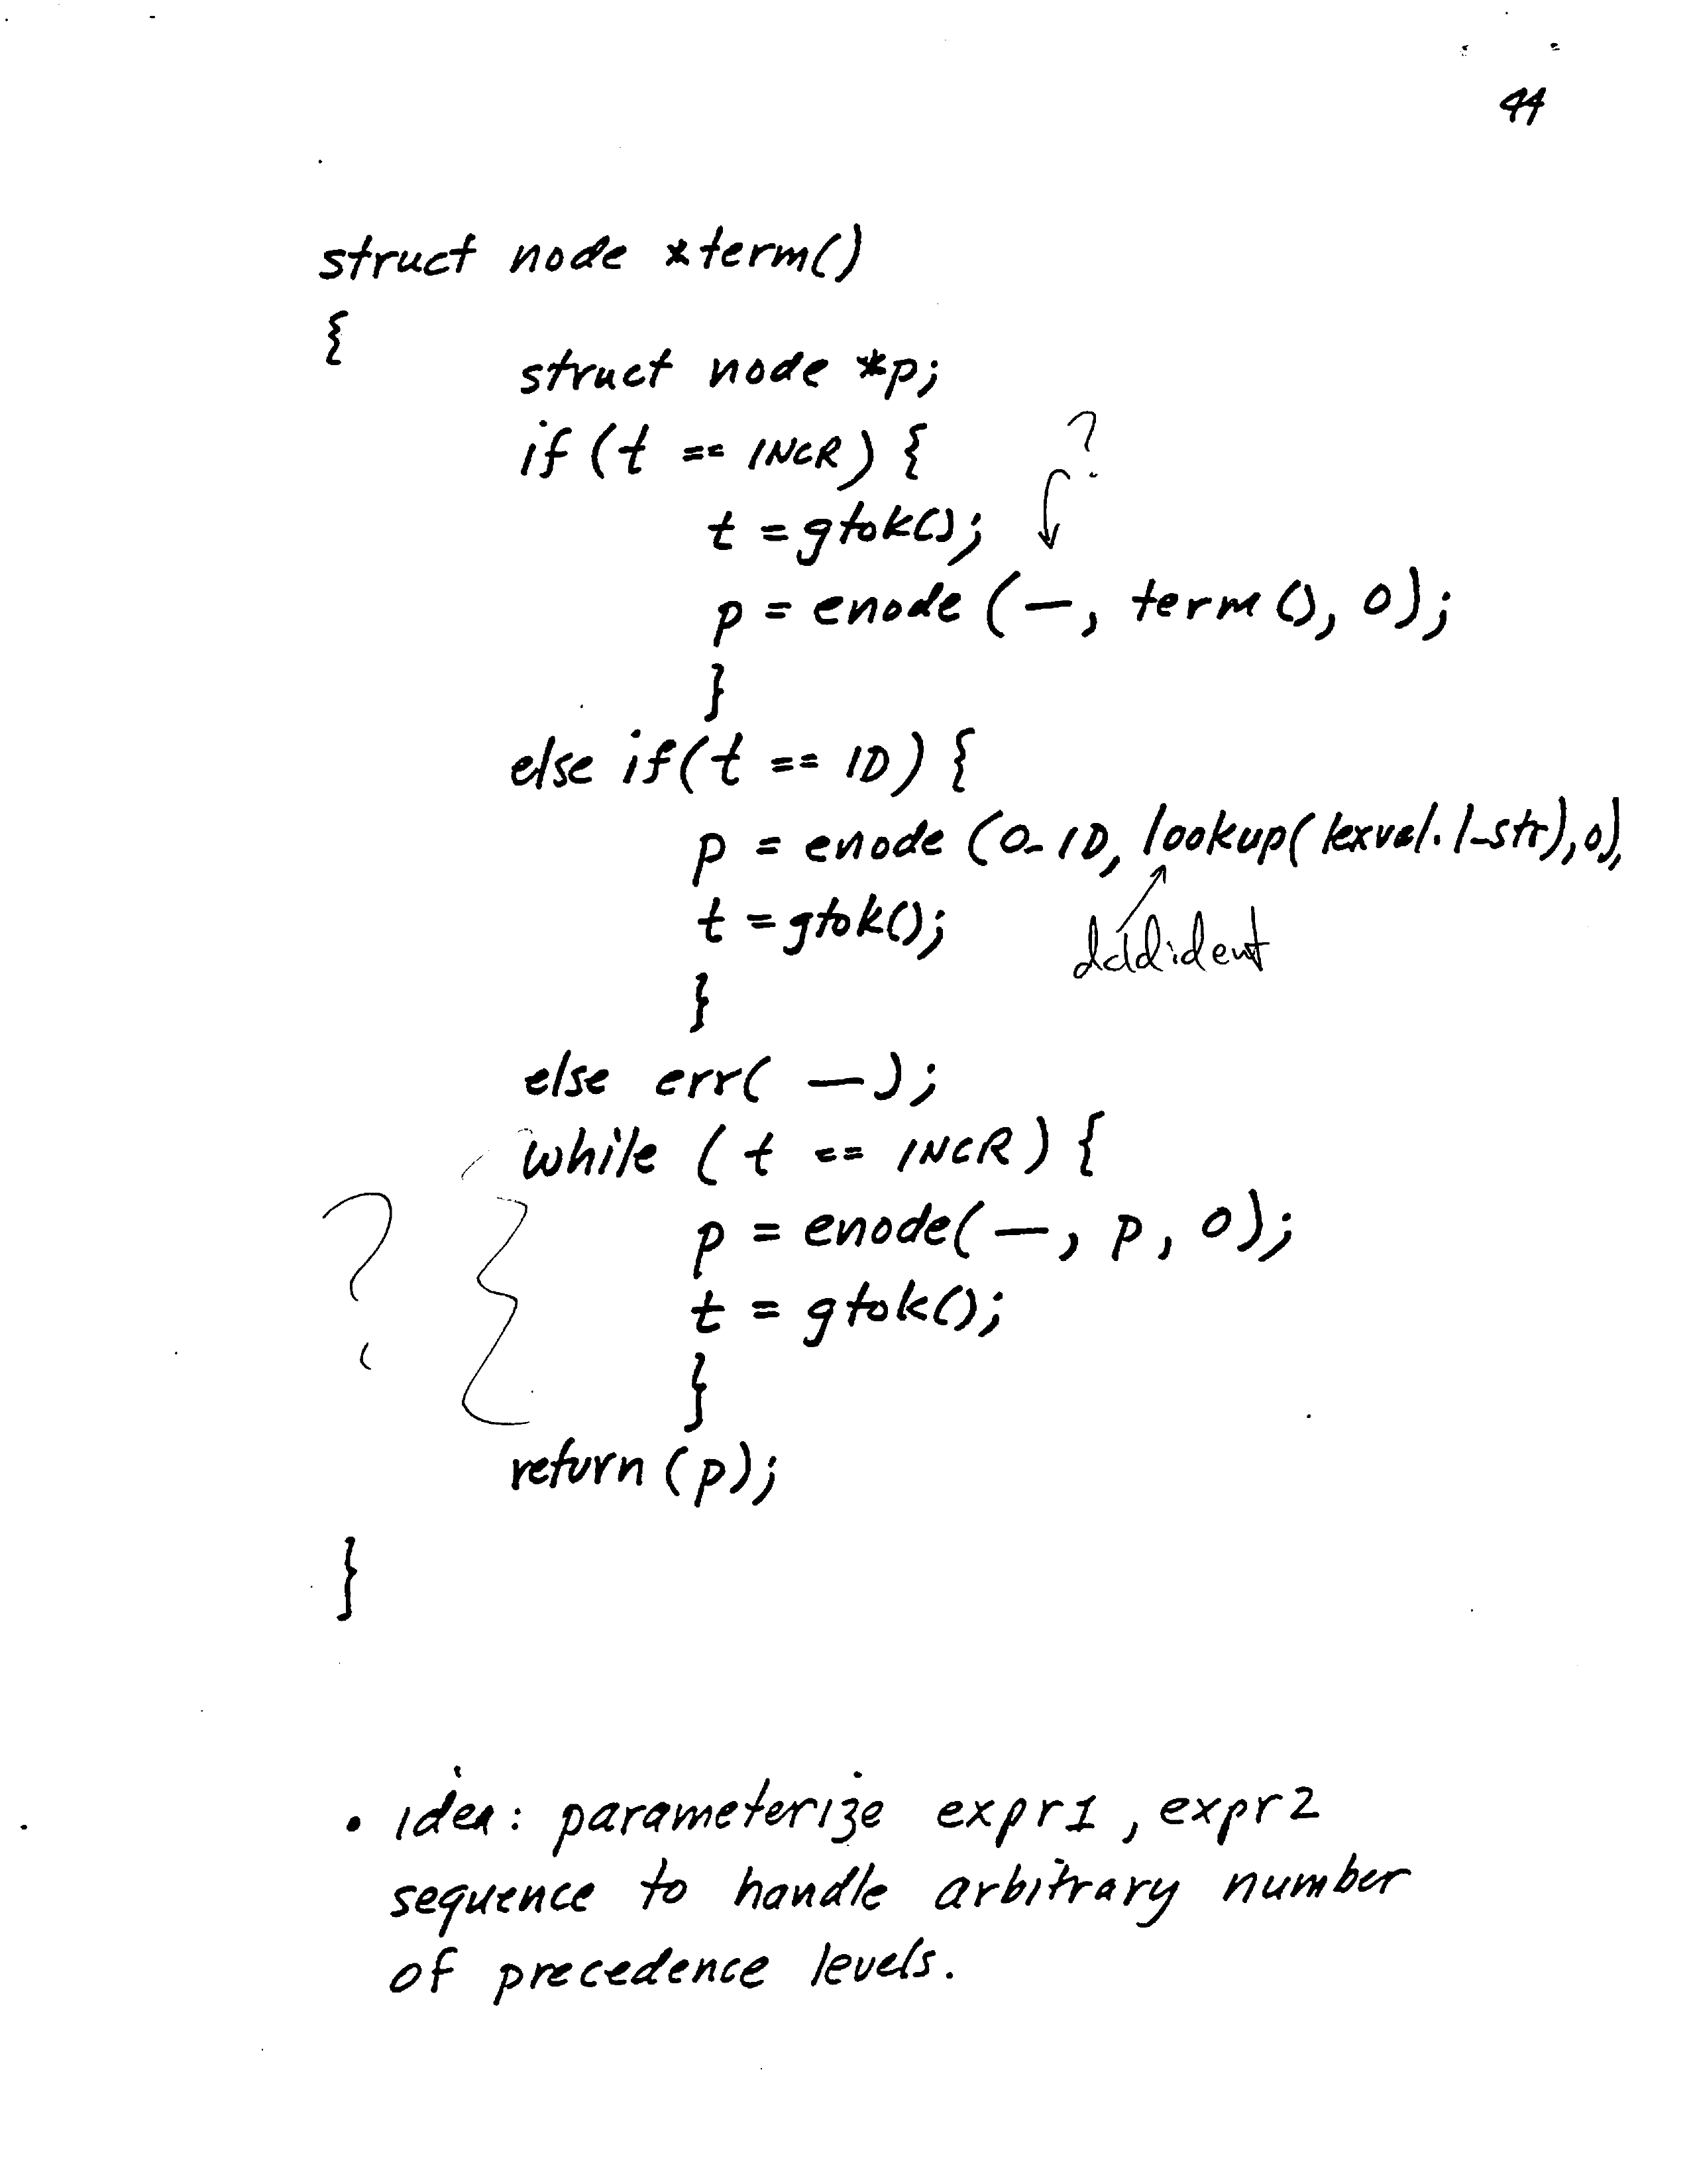 44
struct node *term()
{
struct node *p;
if (t == INCR) {
?
t = gtok();
p = enode (—, term(), 0);
}
else if (t == ID) {
p = enode (O_ID, lookup(lexval.l_str),0),
t = gtok();
}
else err( — );
while (t == INCR) {
?
p = enode(—, p, 0);
t = gtok();
}
return (p);
}
• idea: parameterize expr1, expr2
sequence to handle arbitrary number
of precedence levels.